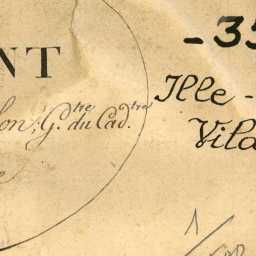 NT
-35
Ille-
lon, G.tre du Cad.tre
Vila
1/